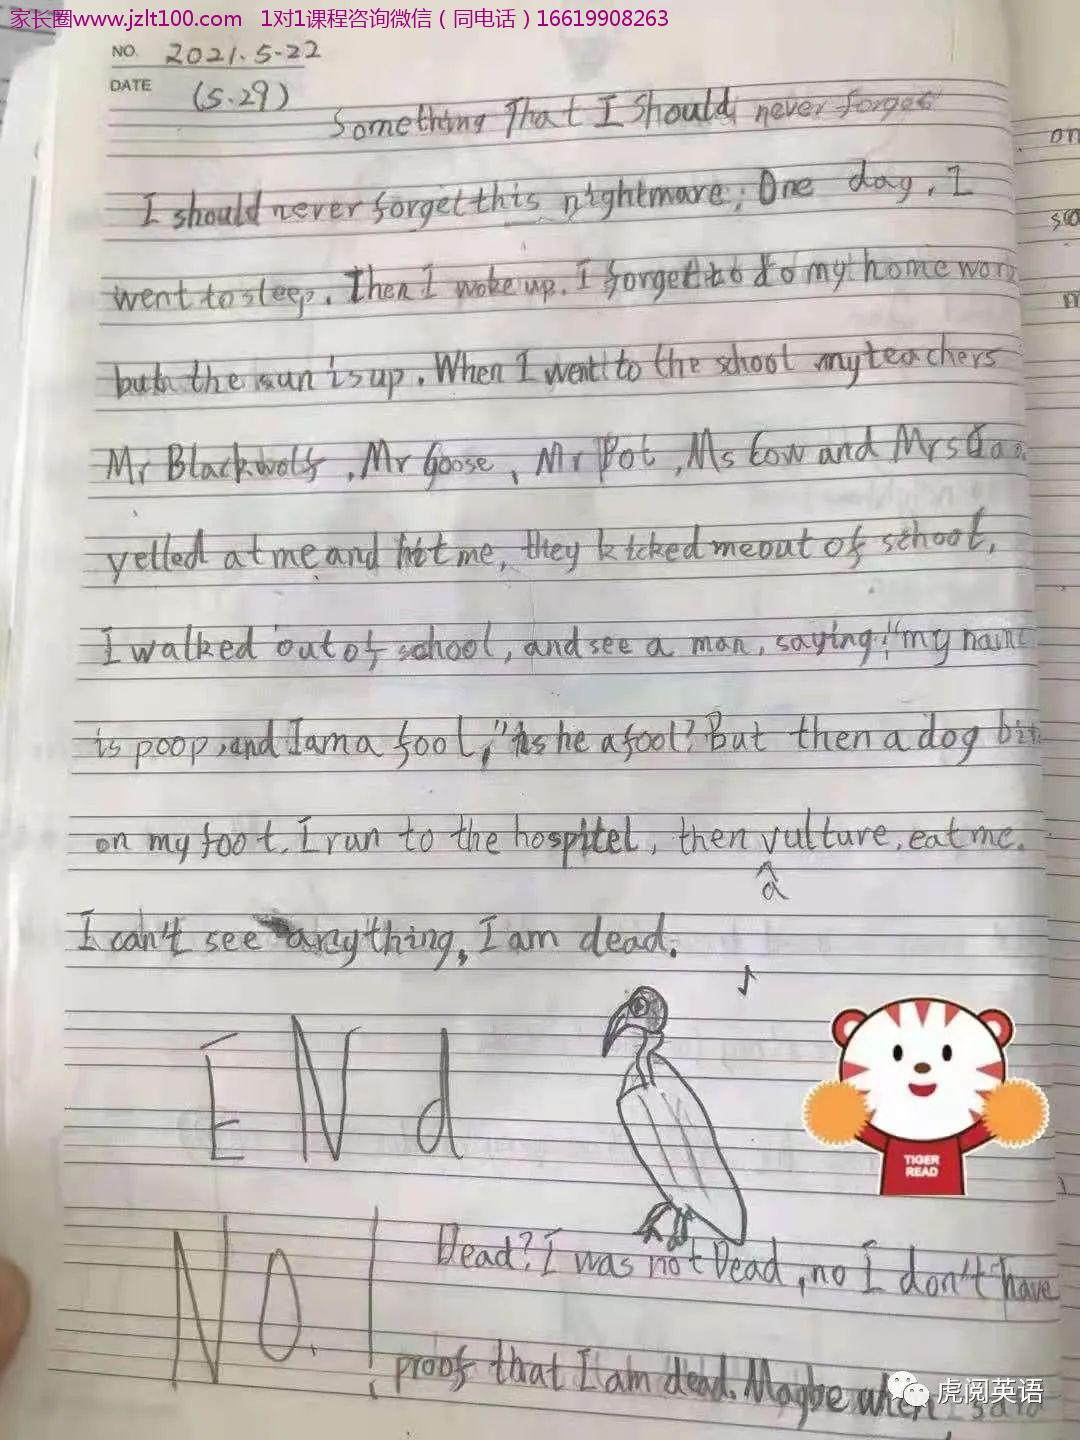 家长圈www.jzlt100.com 1对1课程咨询微信（同电话）16619908263
NO. 2021.5-22
DATE (5.29)
Something That I Should never forget
I should never forget this nightmare; One day, I
went to sleep. Then I woke up. I forget to do my home work
but the sun is up. When I went to the school my teachers
Mr Blackwolf, Mr Goose, Mr Pot, Ms Cow and Mrs
yelled at me and hit me, they kicked me out of school,
I walked out of school, and see a man, saying: "my name
is poop, and I am a fool," is he a fool? But then a dog bit
on my foot. I run to the hospitel, then vulture, eat me.
a
I can't see anything, I am dead.
ENd
TIGER
READ
NO.!
Dead? I was not Dead, no I don't have
proof that I am dead. Maybe when I said
虎阅英语
on
so
m